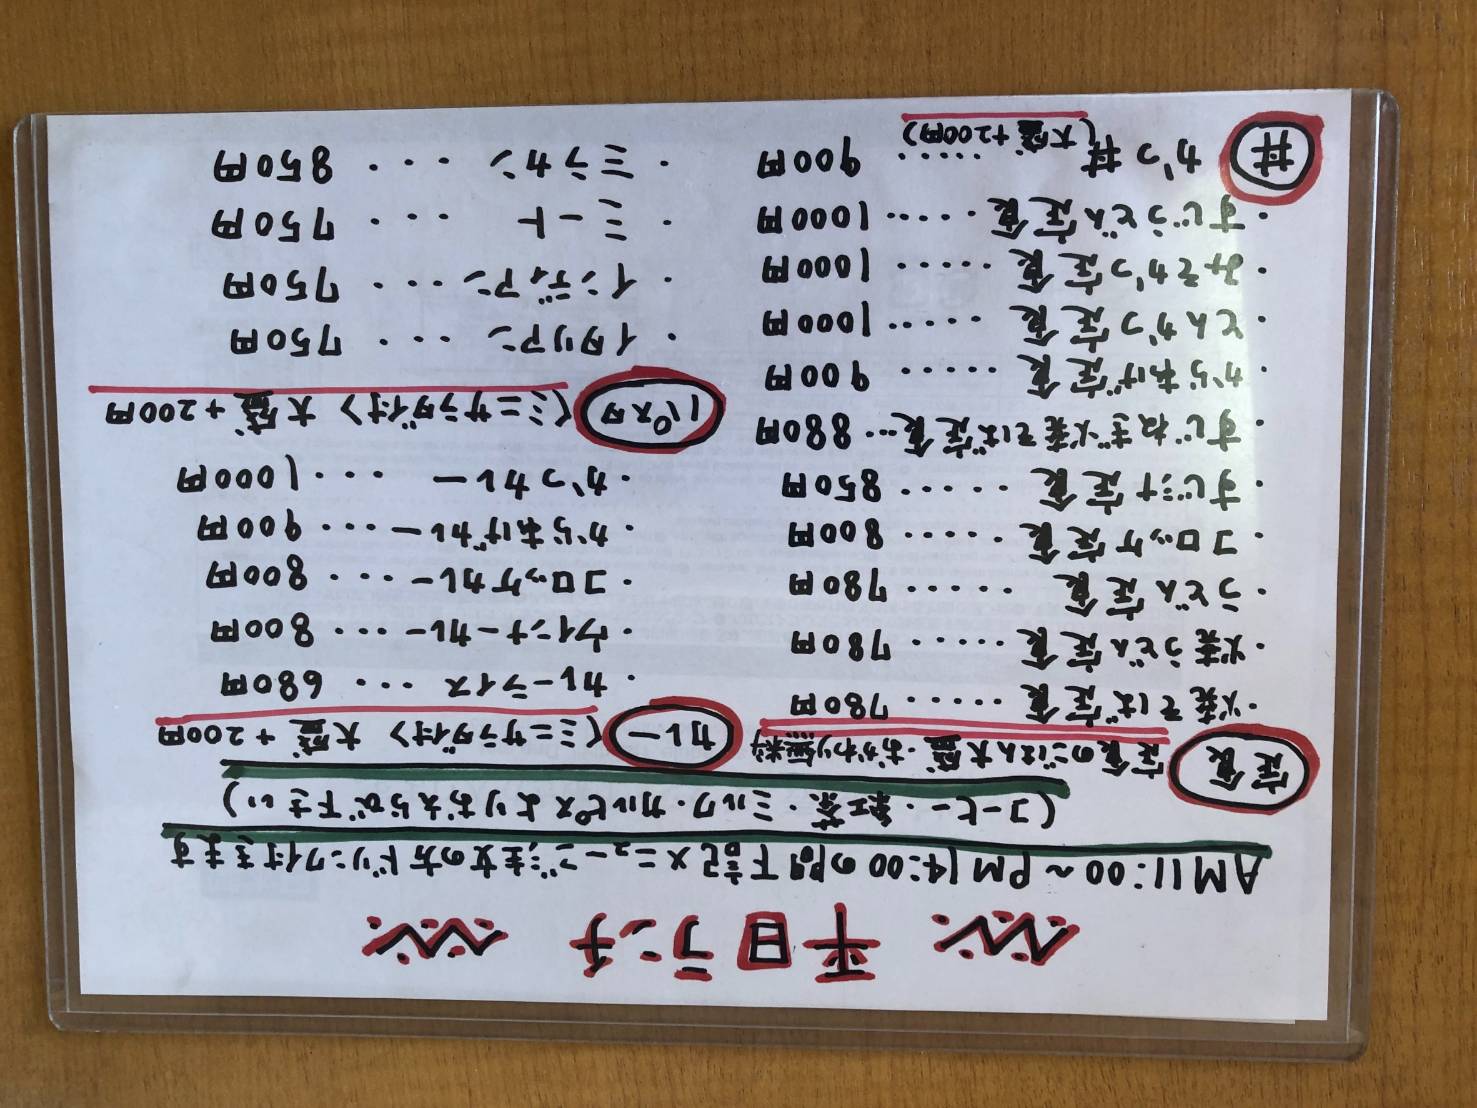 平日ランチ
AM11:00～PM14:00の間下記メニューご注文の方ドリンク付きます
(コーヒー・紅茶・ミルク・カルピスよりおえらび下さい)
定食
定食のごはん大盛・おかわり無料
・焼そば定食・・・・・780円
・焼うどん定食・・・・・780円
うどん定食・・・・・780円
・コロッケ定食・・・・・800円
・すじ汁定食・・・・・850円
・すじねぎ焼そば定食・・・880円
・からあげ定食・・・・・900円
・とんかつ定食・・・・・1000円
・みそかつ定食・・・・・1000円
・すじうどん定食・・・・・1000円
丼
かつ丼・・・・・900円
(大盛+200円)
カレー
(ミニサラダ付) 大盛+200円
・カレーライス・・・680円
・ウインナーカレー・・・800円
・コロッケカレー・・・800円
・からあげカレー・・・900円
・かつカレー・・・1000円
パスタ
(ミニサラダ付) 大盛+200円
・イタリアン・・・750円
・インディアン・・・750円
・ミート・・・750円
・ミラカン・・・850円